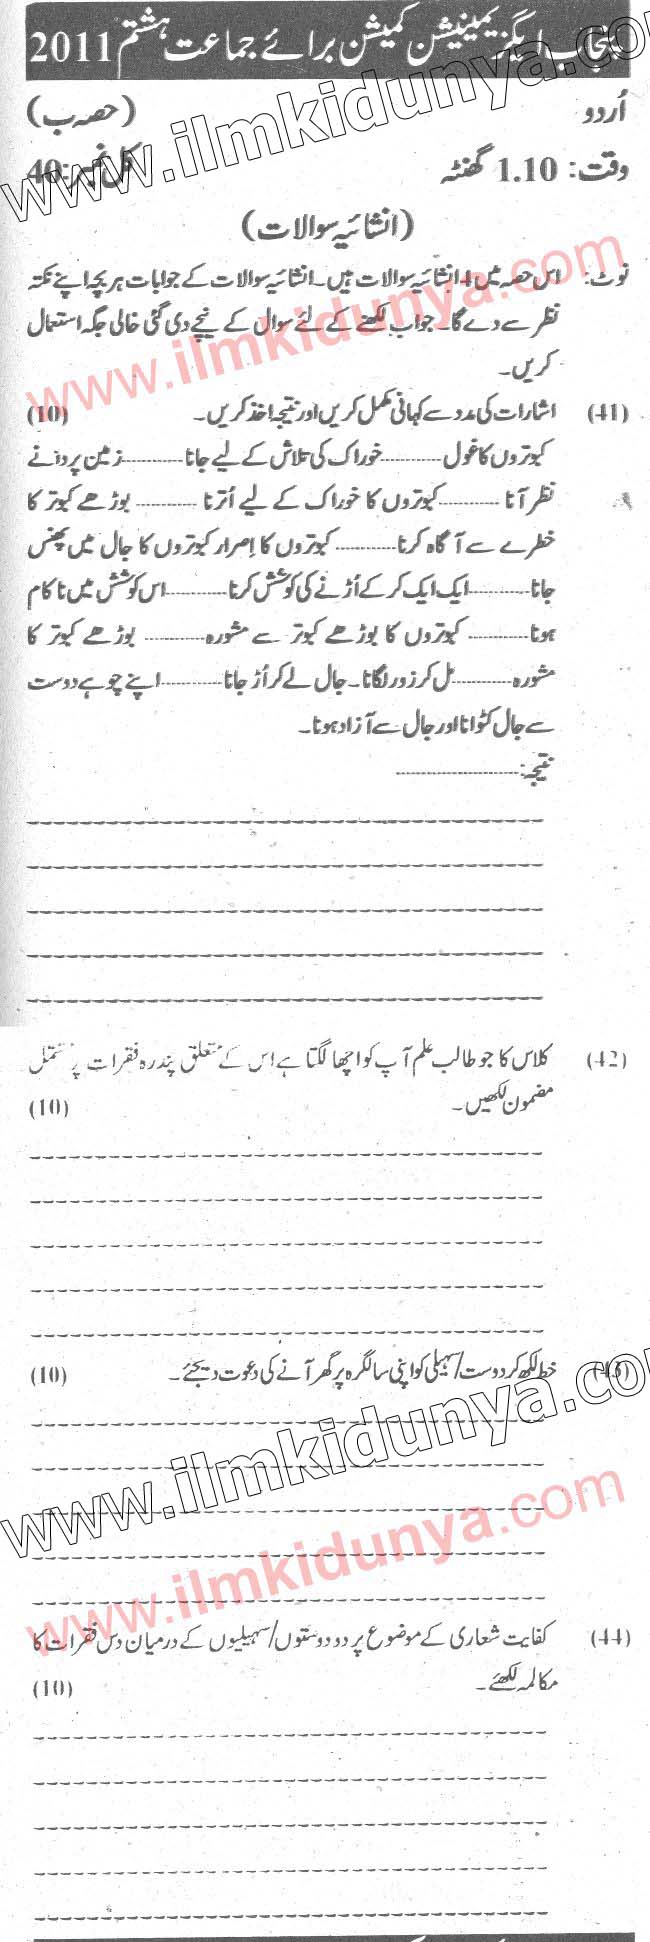 پنجاب ایگزیمینیشن کمیشن برائے جماعت ہشتم 2011
اُردو (حصہ ب)
وقت: 1.10 گھنٹہ کل نمبر: 40
(انشائیہ سوالات)
نوٹ: اس حصہ میں 4 انشائیہ سوالات ہیں۔ انشائیہ سوالات کے جوابات ہر بچہ اپنے نکتہ
نظر سے دے گا۔ جواب لکھنے کے لئے سوال کے نیچے دی گئی خالی جگہ استعمال
کریں۔
(41) اشارات کی مدد سے کہانی مکمل کریں اور نتیجہ اخذ کریں۔ (10)
کبوتروں کا غول ---------- خوراک کی تلاش کے لیے جانا ---------- زمین پر دانے
نظر آنا ---------- کبوتروں کا خوراک کے لیے اُترنا ---------- بوڑھے کبوتر کا
خطرے سے آگاہ کرنا ---------- کبوتروں کا اصرار کبوتروں کا جال میں پھنس
جانا ---------- ایک ایک کر کے اُڑنے کی کوشش کرنا ---------- اس کوشش میں ناکام
ہونا ---------- کبوتروں کا بوڑھے کبوتر سے مشورہ ---------- بوڑھے کبوتر کا
مشورہ ---------- مل کر زور لگانا۔ جال لے کر اُڑ جانا ---------- اپنے چوہے دوست
سے جال کٹوانا اور جال سے آزاد ہونا۔
نتیجہ: --------------------
(42) کلاس کا جو طالب علم آپ کو اچھا لگتا ہے اس کے متعلق پندرہ فقرات پر مشتمل
مضمون لکھیں۔ (10)
(43) خط لکھ کر دوست/سہیلی کو اپنی سالگرہ پر گھر آنے کی دعوت دیجئے۔ (10)
(44) کفایت شعاری کے موضوع پر دو دوستوں/سہیلیوں کے درمیان دس فقرات کا
مکالمہ لکھئے۔ (10)
www.ilmkidunya.com
www.ilmkidunya.com
www.ilmkidunya.com
www.ilmkidunya.com